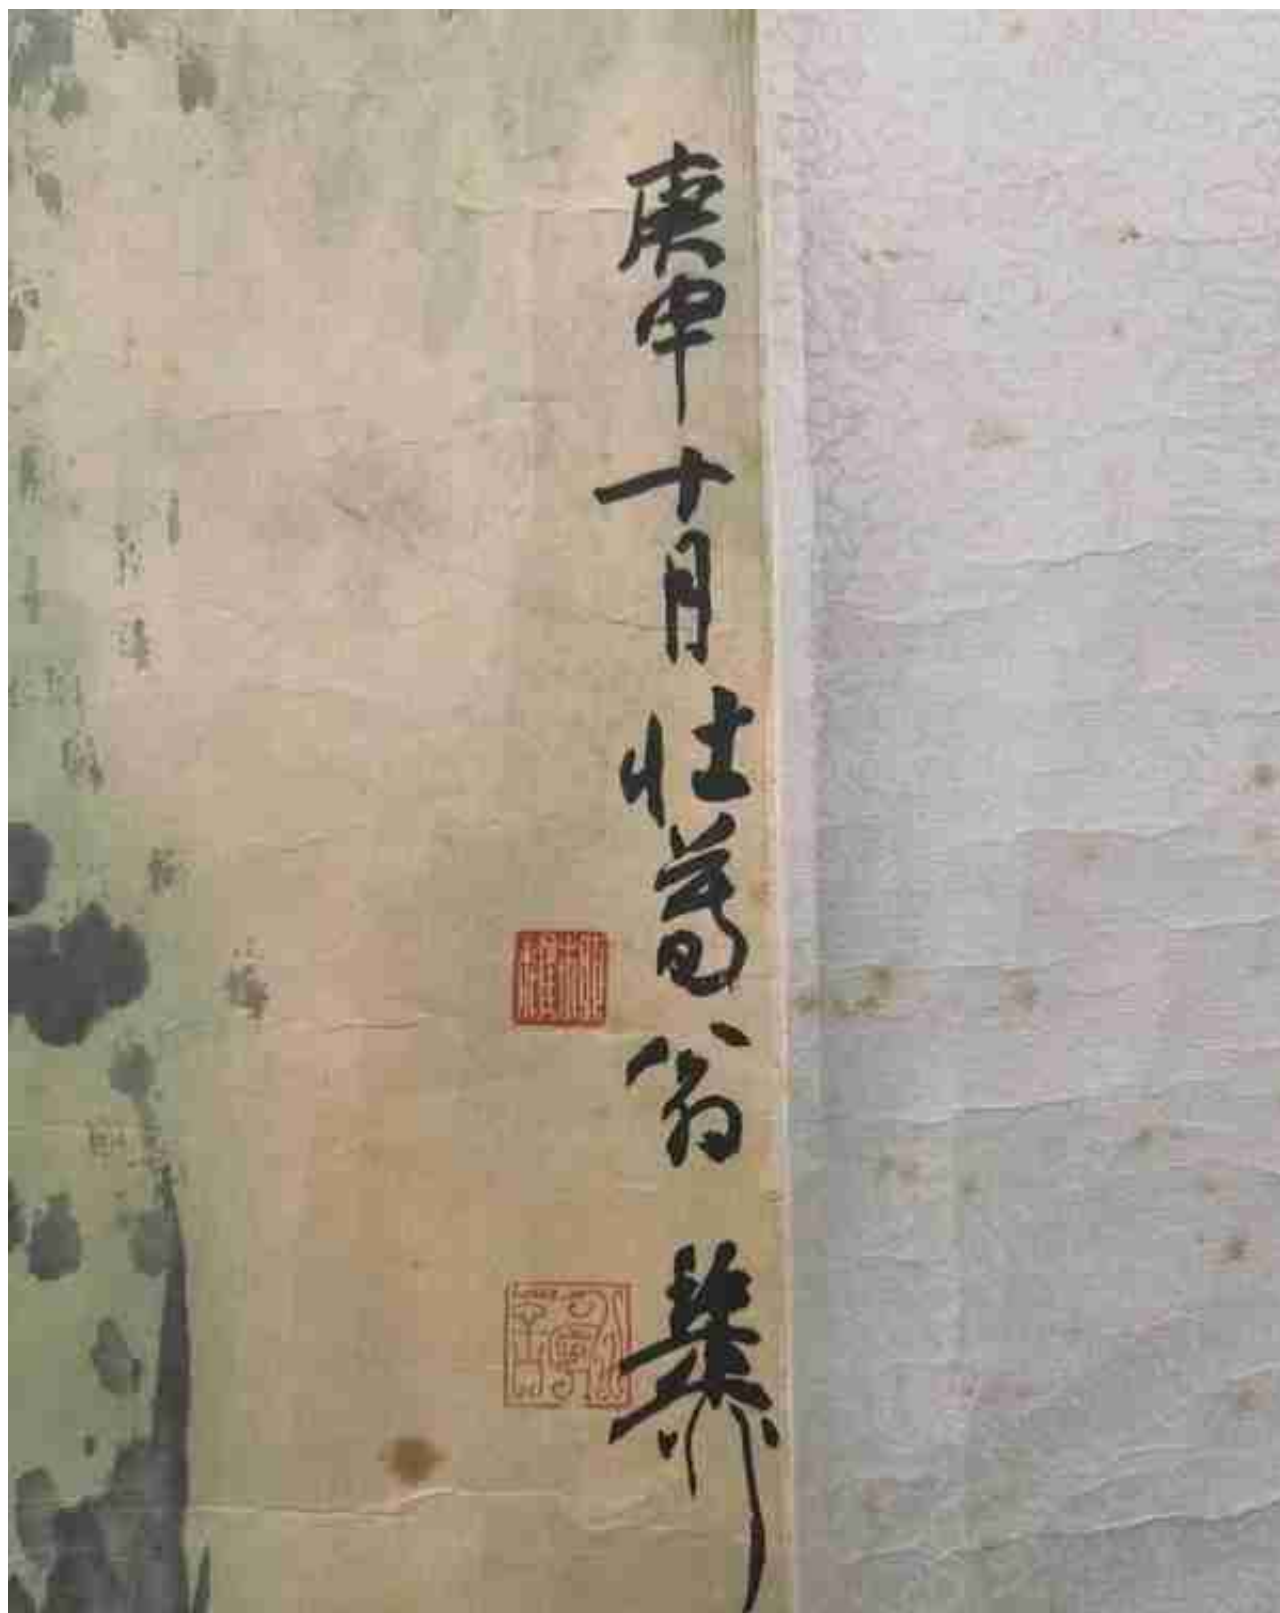 庚申十月壮暮翁稚